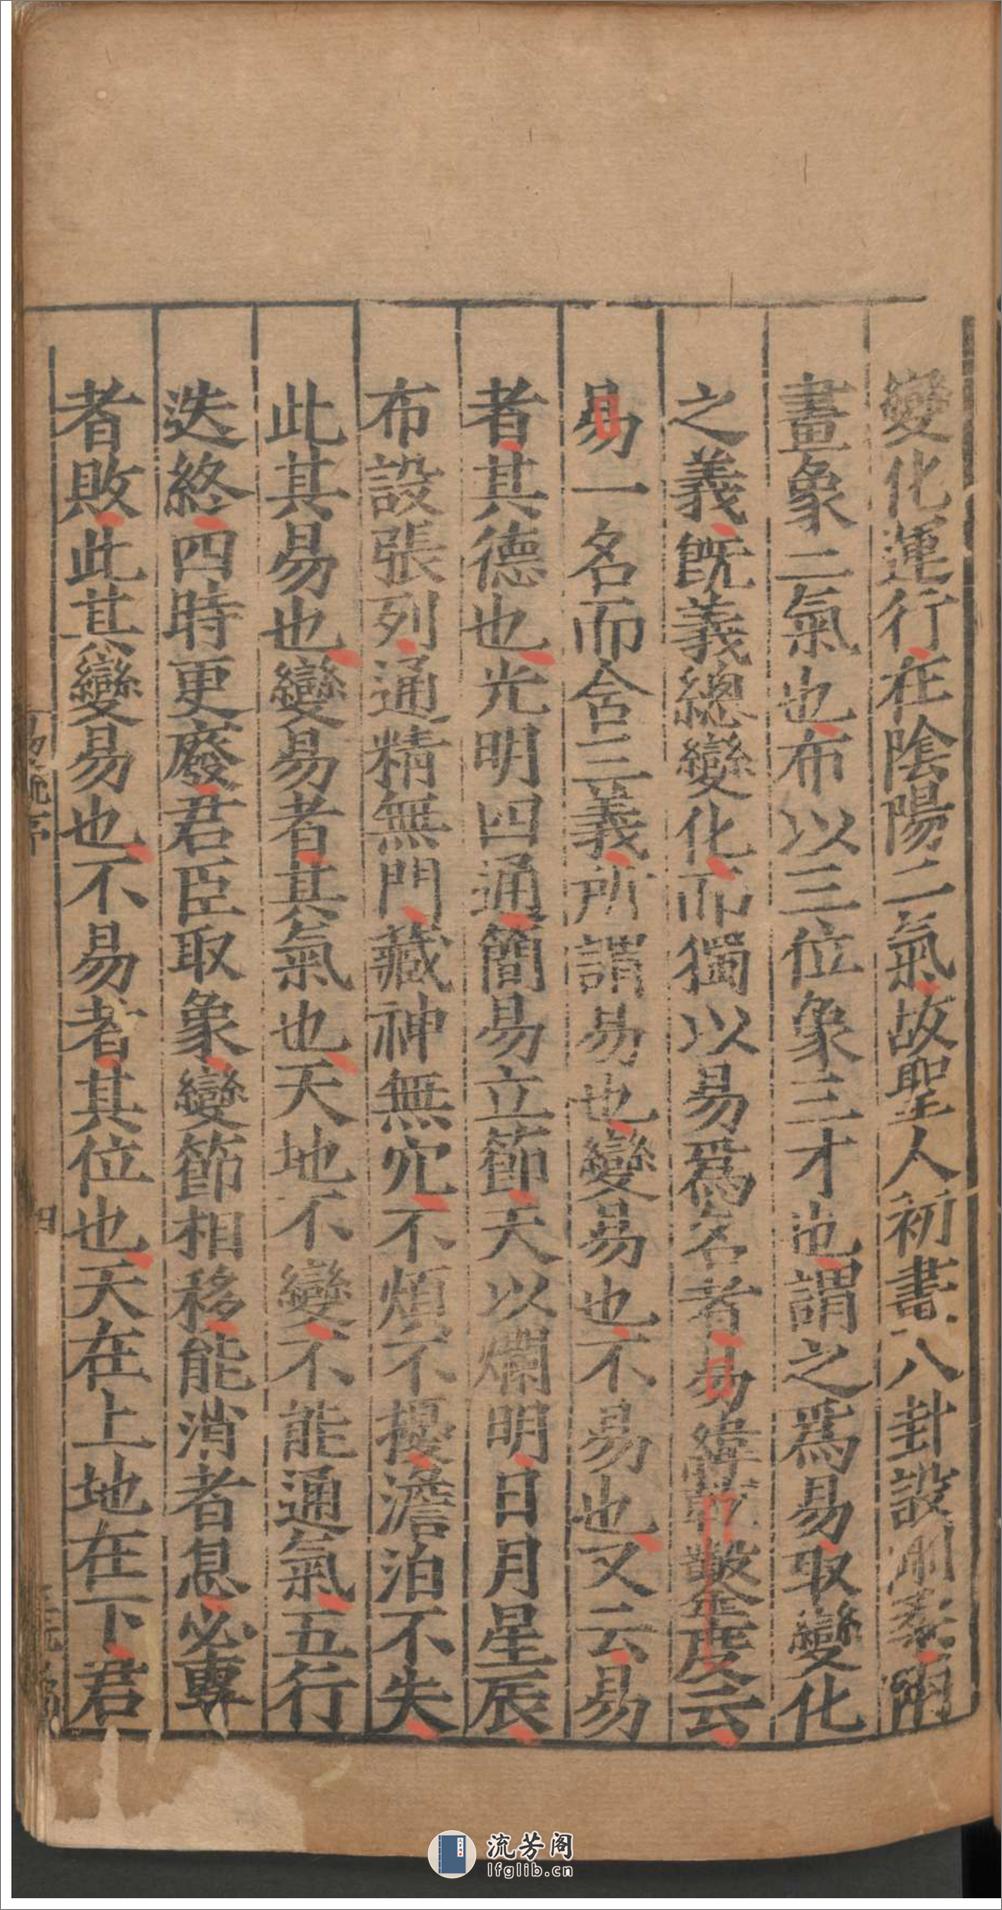 變化運行在陰陽二氣故聖人初畫八卦設剛柔兩
畫象二氣也布以三位象三才也謂之爲易取變化
之義旣義總變化而獨以易爲名者易緯乾鑿度云
易一名而含三義所謂易也變易也不易也又云易
者其德也光明四通簡易立節天以爛明日月星辰
布設張列通精無門藏神無穴不煩不擾澹泊不失
此其易也變易者其氣也天地不變不能通氣五行
迭終四時更廢君臣取象變節相移能消者息必專
者敗此其變易也不易者其位也天在上地在下君
四
流芳阁
lfglib.cn